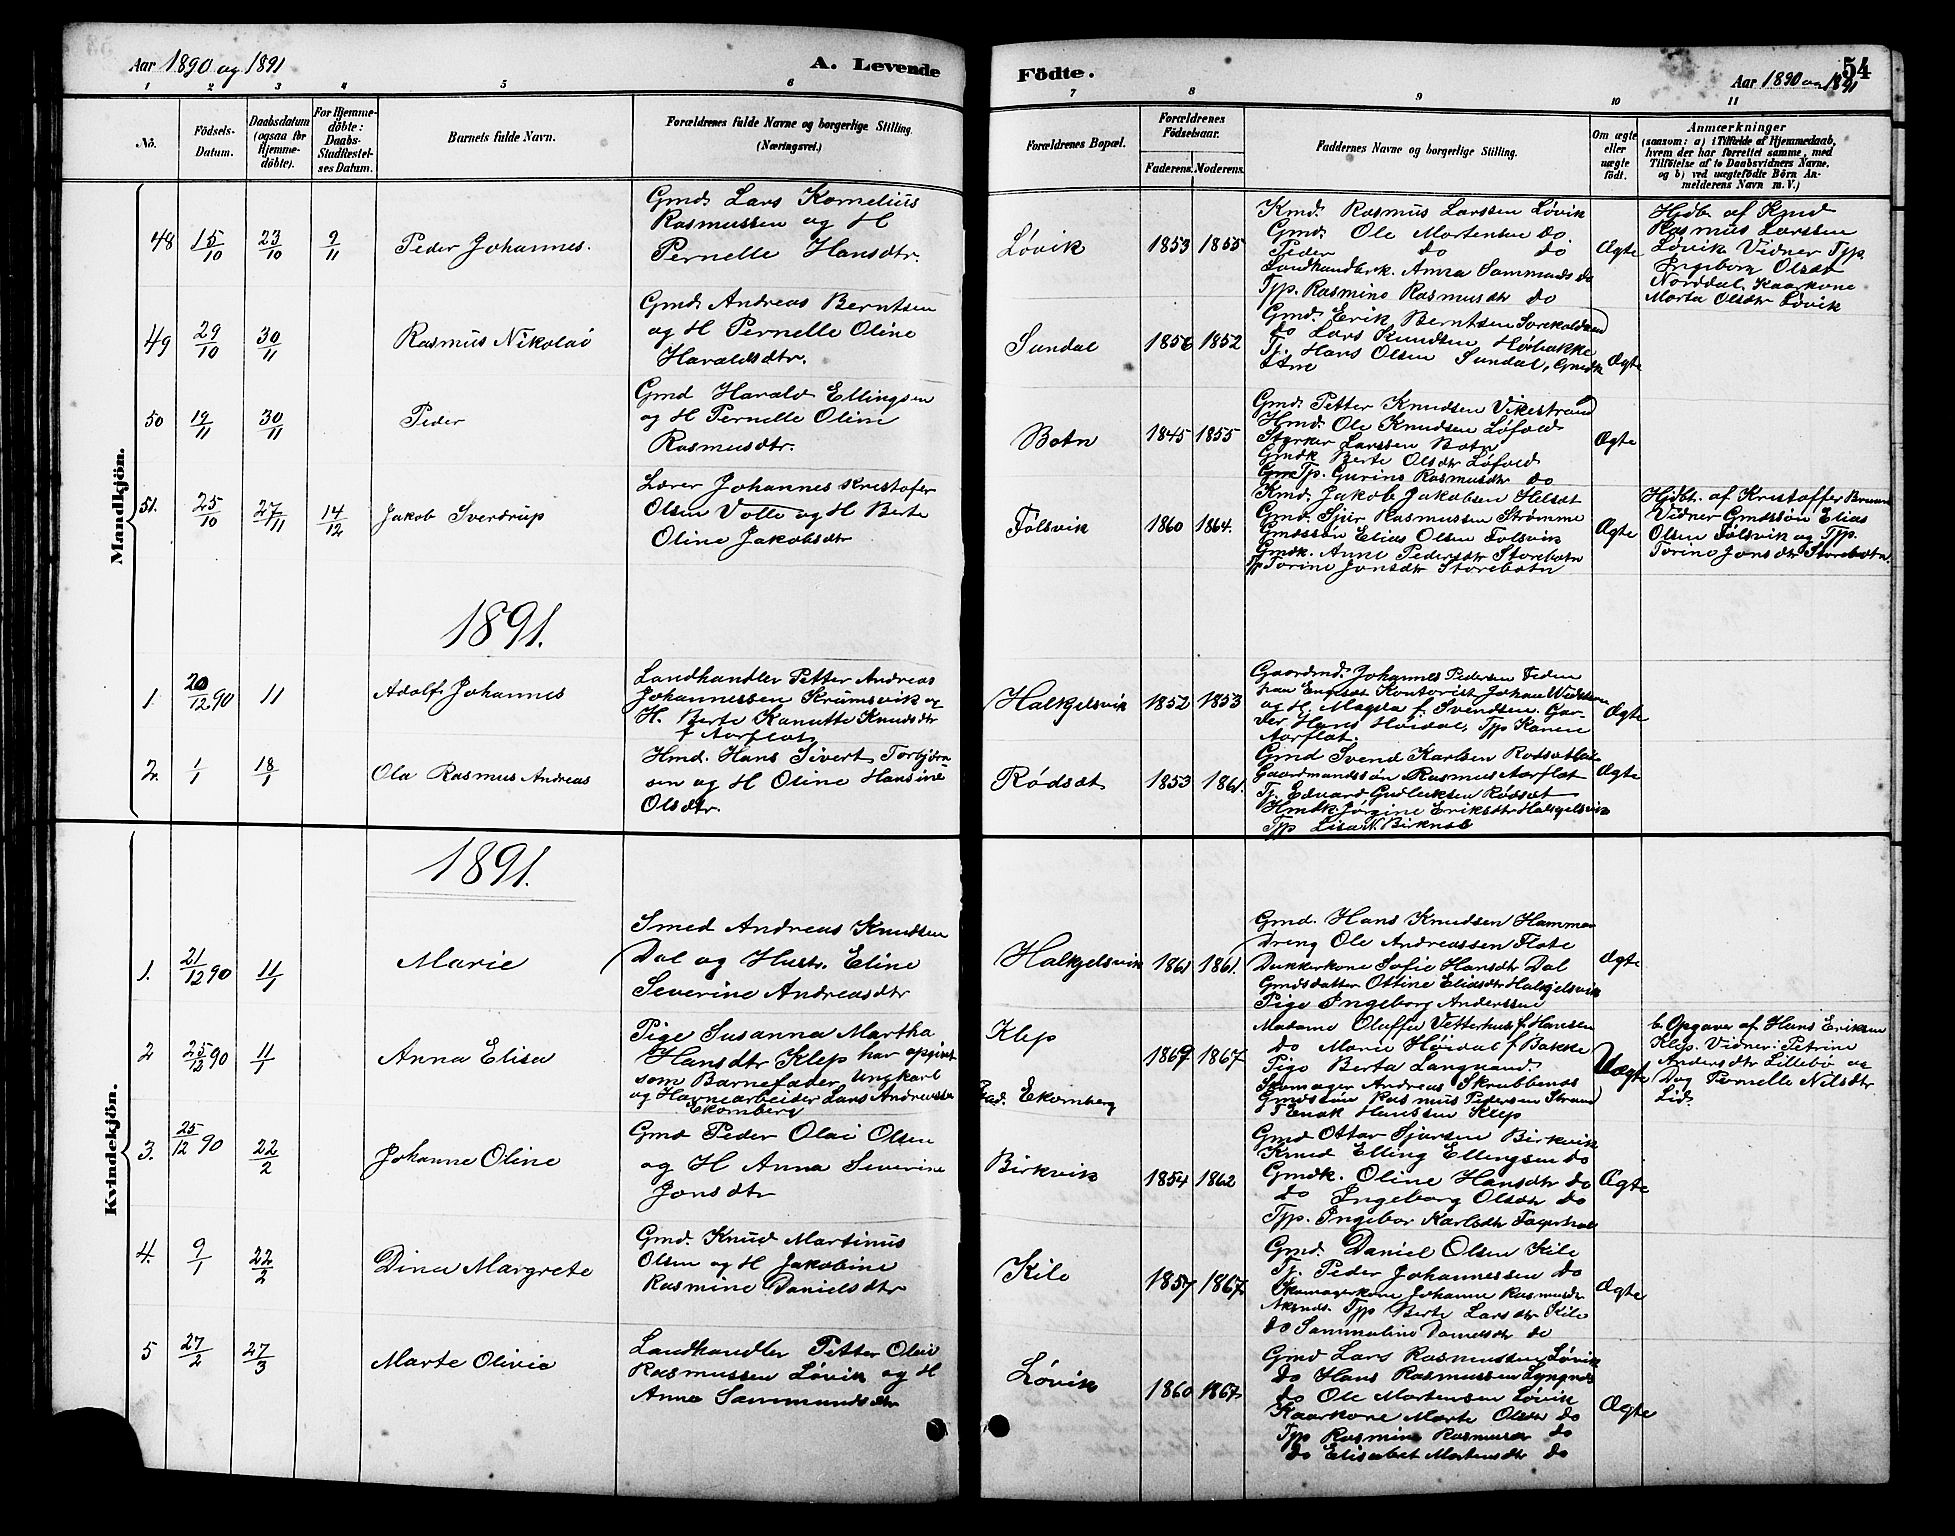 Aar 1890 og 1891
A. Levende
Födte.
Aar 1890 og 1891
54
1 2 3 4 5 6 7 8 9 10 11
No.
Födsels-Datum.
Daabsdatum (ogsaa for Hjemme-döbte).
For Hjemme-döbte: Daabs-Stadfæstel-ses Datum.
Barnets fulde Navn.
Forældrenes fulde Navne og borgerlige Stilling.
(Næringsvei.)
Forældrenes Bopæl.
Forældrenes Födselsaar.
Faderens. Moderens.
Faddernes Navne og borgerlige Stilling.
Om ægte eller uægte født.
Anmærkninger
(saasom: a) i Tilfælde af Hjemmedaab,
hvem der har forrettet samme, med
Tilføielse af to Daabsvidners Navne,
og b) ved uægtefödte Börn An-
melderens Navn m. V.)
Mandkjön.
48 15/10 23/10 9/11 Peder Johannes.
Gmd. Lars Kornelius
Rasmussen og H
Pernelle Hansdtr.
Løvik 1853 1855
Kmd. Rasmus Larssen Løvik
Gmd. Ole Mortensen do.
Peder do do
Landhandlerk. Anna Sammunds do
Typ. Rasmine Rasmusdtr do
Ægte
Hjdb. af Kmd
Rasmus Larssen
Løvik Vidner Typ.
Ingeborg Olsdtr
Norddal, Kaarkone
Marta Olsdtr Løvik
49 29/10 30/11 Rasmus Nikolai
Gmd. Andreas Berntsen
og H Pernelle Oline
Haraldsdtr.
Sundal 1856 1852
Gmd. Erik Berntsen
do Lars Knudsen Høibakke
Tj. Hans Olsen Sundal, Gmdk
Ægte
50 19/11 30/11 Peder
Gmd Harald Ellingsen
og H Pernelle Oline
Rasmusdtr.
Botn 1845 1855
Gmd. Petter Knudsen Vikestrand
Hmd. Ole Knudsen Løfold
Styrker Larssen Botn
Gmdk Berte Olsdtr Løfold
Typ. Gurine Rasmusdtr do
Ægte
51. 25/10 27/11 14/12 Jakob Sverdrup
Lærer Johannes Kristofer
Olsen Volle og H Berte
Oline Jakobsdtr
Folsvik 1860 1864.
Kmd. Jakob Jakobsen Helset
Gmd. Sjur Rasmussen Strømme
Gmdssøn Elias Olsen Folsvik
Gmdk. Anne Pedersdtr Storebotn
Typ Torine Jonsdtr Storebotn
Ægte
Hjdbt. af Kristoffer
Vidner Gmdssøn Elias
Olsen Folsvik og Typ.
Torine Jonsdtr Storebotn.
1891.
1. 20/12 90 11 Adolf Johannes
Landhandler Petter Andreas
Johannessen Krumsvik og
H. Berte Kanutte Knudsdtr
f Aarflot
Halkjelsvik 1852 1853
Gaardmd. Johannes Pedersen
paa Engeset Kontorist Johan
og H. Magda f Svendsen. Gar-
ver Hans Høidal, Typ Karen
Aarflot.
Ægte
2. 1/1 18/1 Ola Rasmus Andreas
Hmd. Hans Sivert Torbjørn
sen og H Oline Hansine
Olsdtr.
Rødsæt 1853 1861.
Gmd Svend Karlsen
Gaardmandssøn Rasmus Aarflot
Tj. Edvard Gudleiksen Rødsæt
Hmdk Jørgine Eriksdtr Halkjelsvik
Typ Lisa N. Birknes
Ægte
Kvindekjön.
1891.
1. 21/12 90 11/1 Marie
Smed Andreas Knudsen
Dal og Hustr. Eline
Severine Andreasdtr
Halkjelsvik 1861 1861.
Gmd. Hans Knudsen Hammer
Dreng Ole Andreassen Flote
Dukkerkone Sofie Hansdtr Dal
Gmdsdatter Ottine Eliasdtr Halkjelsvik
Pige Ingeborg Anderssen
Ægte
2 25/12 90 11/1 Anna Elisa
Pige Susanna Martha
Hansdtr Klep har opgivet
som Barnefader Ungkarl
og Havnearbeider Lars Andreassen
Ekornberg
Klep
Fad. Ekornberg
1869 1867
Madame Oluffa Vetterhus f. Hansen
do Marie Høidal f Bakke
Pige Berta Langvand.
Skomager Andreas Skrubbenes
Gmdssøn Rasmus Pedersen Strand
Enok Hanssen Klep
Uægte
b. Opgave af Hans Eriksen
Klep. Vidner: Petrine
Andersdtr Lillebø og
Dag Pernelle Nilsdtr
Lid.
3. 25/12 90 22/2 Johanne Oline
Gmd Peder Olai Olsen
og H Anna Severine
Jonsdtr
Birkvik 1854 1862
Gmd Ottar Sjursen Birkvik
Kmd Elling Ellingsen do
Gmdk. Oline Hansdtr do
do Ingeborg Olsdtr do
Typ. Ingebor Karlsdtr
Ægte
4. 9/1 22/2 Dina Margrete
Gmd. Knud Martinus
Olsen og H Jakobine
Rasmine Danielsdtr
Kile 1857 1867
Gmd. Daniel Olsen Kile
Tj. Peder Johannessen do
Skomagerkone Johanne Rasmusdtr
Typ Berte Larsdtr Kile
do Sammaline Danielsdtr do
Ægte
5 27/2 27/3 Marte Olivia
Landhandler Petter Olai
Rasmussen Løvik og H
Anna Sammundsdtr
Løvik 1860 1867
Gmd Lars Rasmussen Løvik
do Hans Rasmussen Lyngnes
do Ole Mortensen Løvik
Kaarkone Marte Olsdtr do
Typ Rasmine Rasmusdtr do
do Elisabet Martensdtr do
Ægte